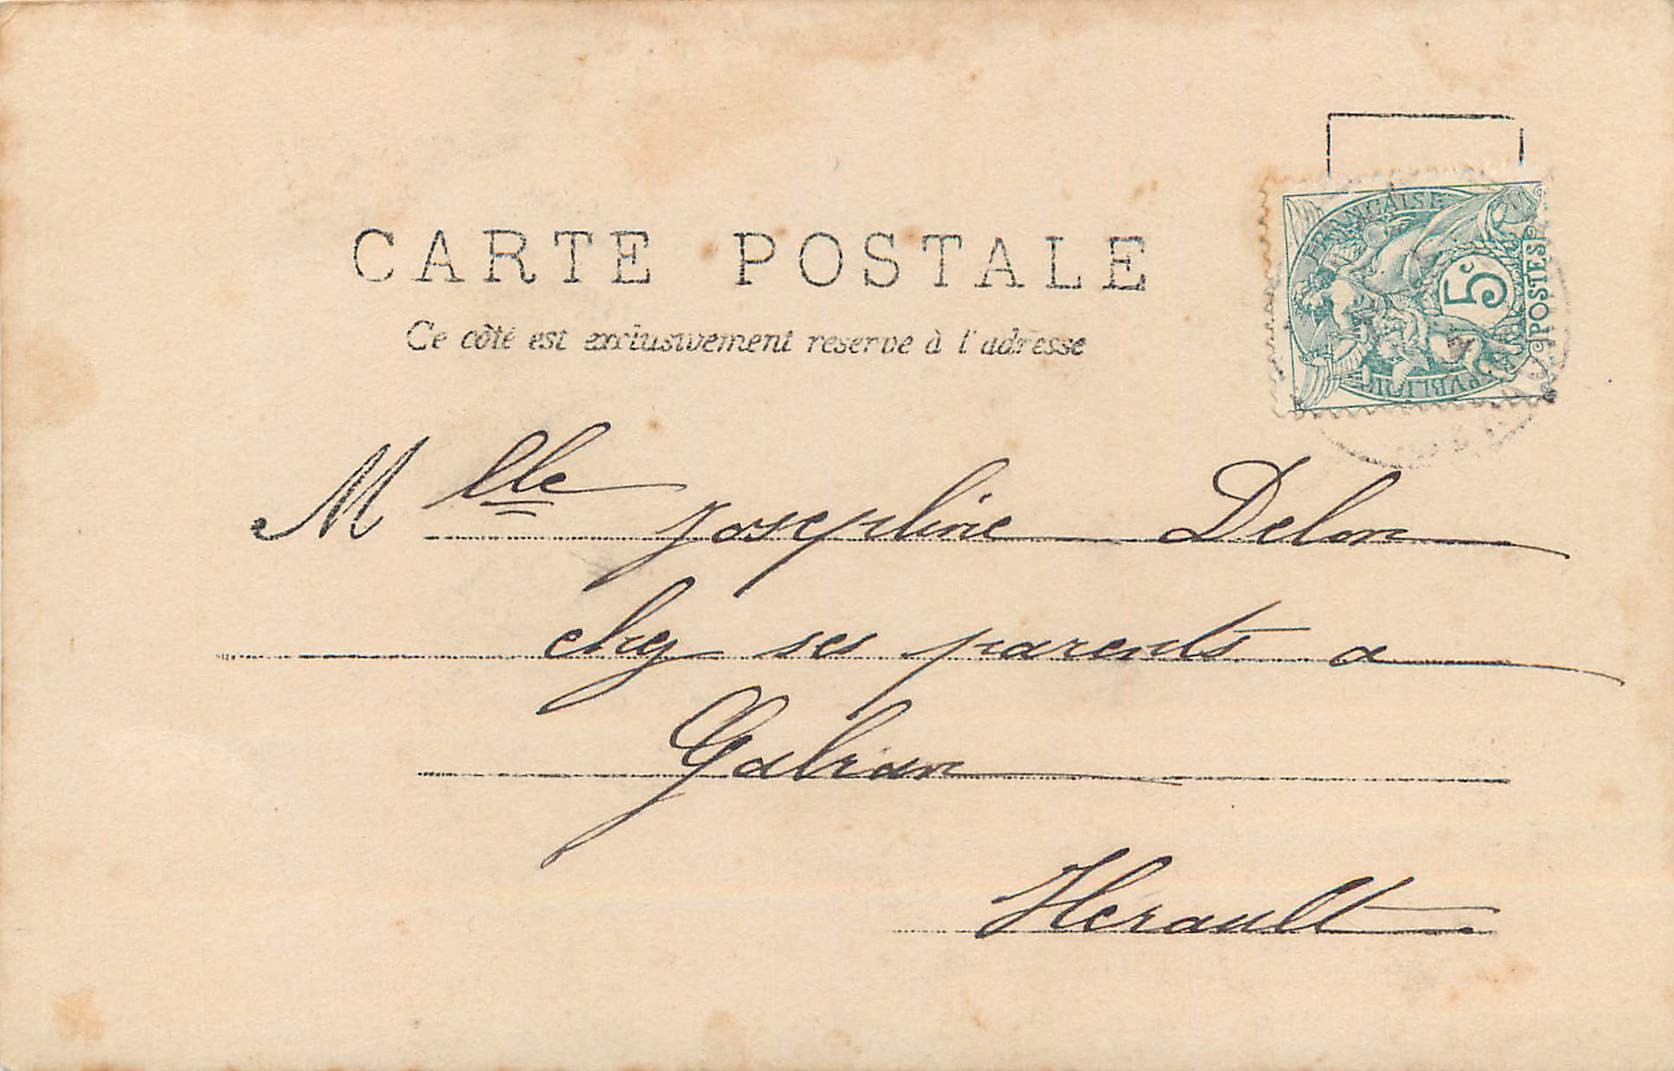 CARTE POSTALE
Ce côté est exclusivement reservé à l'adresse
RÉPUBLIQUE FRANÇAISE
5c
POSTES
Mlle Josephine Delon
chez ses parents a
Gabian
Herault.